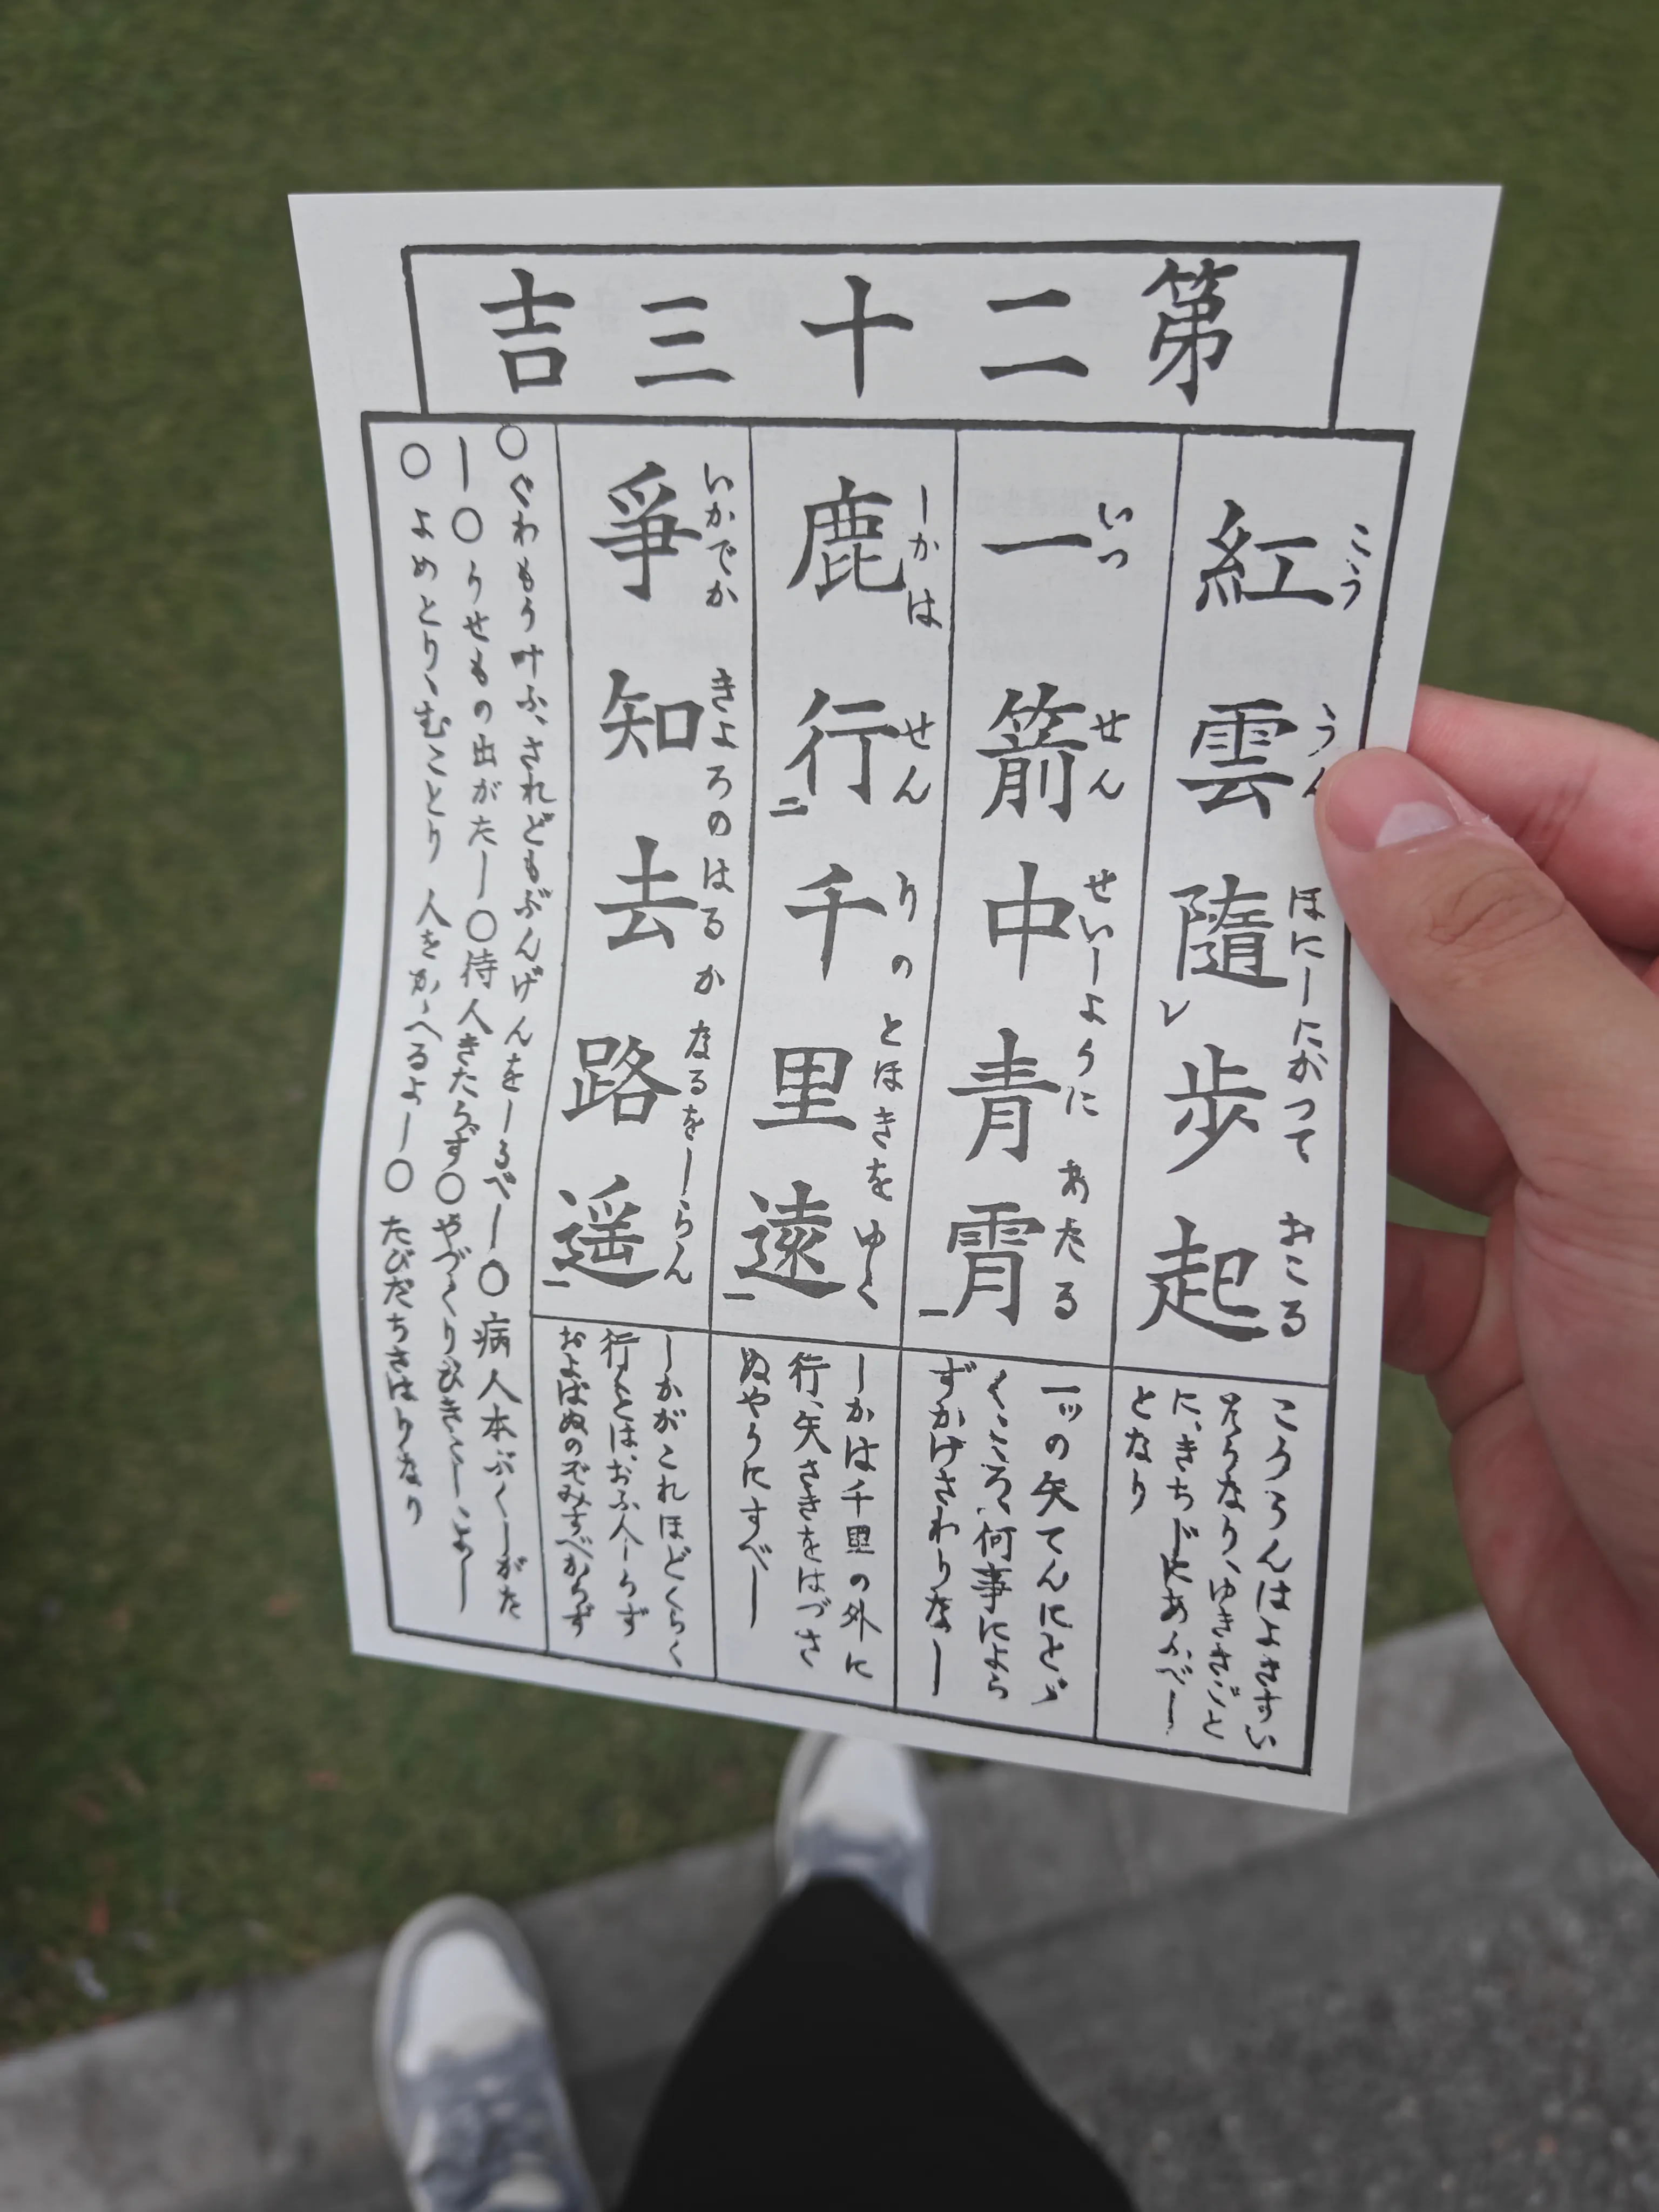 第二十三吉
紅雲隨歩起
こう うん ほにしたがつて おこる
一箭中青霄
いつ せん せいしように あたる
鹿行千里遠
しかは せん りの とほきを ゆく
爭知去路遥
いかでか きよろのはるか なるをしらん
こううんはよきずい
さうなり、ゆきさきごと
に、きちじにあふべし
となり
一ツの矢てんにとゞ
くこゝろ、何事によら
ずかけさわりなし
しかは千里の外に
行、矢さきをはづさ
ぬやうにすべし
しかがこれほどくらく
行とは、おふ人しらず
およばぬのぞみすべからず
○ぐわもう叶ふ、されどもぶんげんをしるべし○病人本ぶくしがた
し○うせもの出がたし○待人きたらず○やづくりひきこしよし
○よめとり、むことり 人をかゝへるよし○たびだちさはりなり